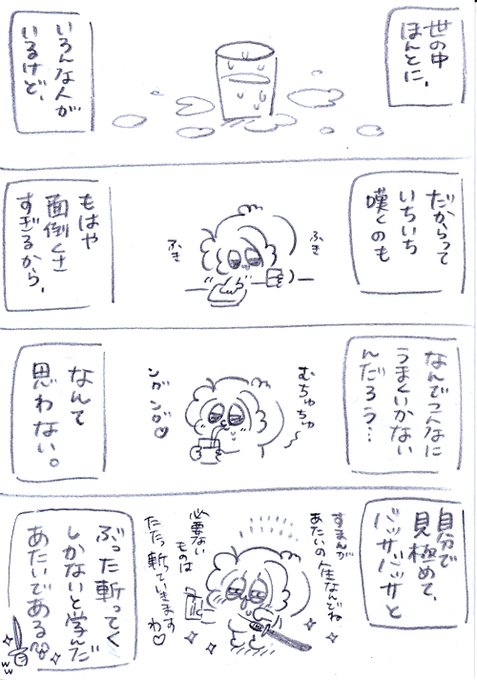 世の中、
ほんとに、
いろんな人が
いるけど、
だからって
いちいち
嘆くのも
ふき
ふき
もはや
面倒くさ
すぎるから、
なんでこんなに
うまくいかない
んだろう…
むちゅちゅ
ンガンガ♡
なんて
思わない。
自分で
見極めて、
バッサバッサと
すまんが
あたいの人生なんでね
必要ない
ものは
ただ、斬っていきます
わ♡
ぶった斬ってく
しかないと学んだ
あたいである
ww